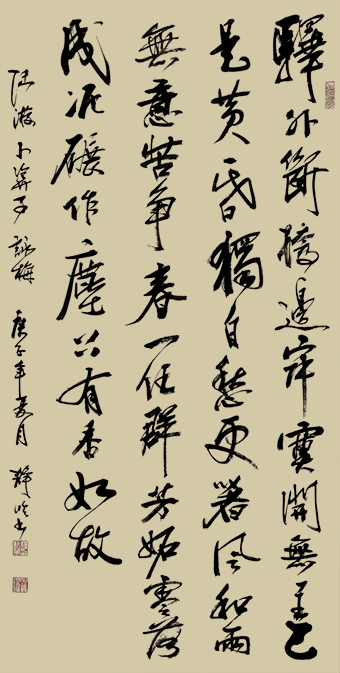 驛外斷橋邊寂寞開無主已
是黃昏獨自愁更著風和雨
無意苦争春一任群芳妬零落
成泥碾作塵只有香如故
陆游卜算子詠梅 庚子年夏月 靜